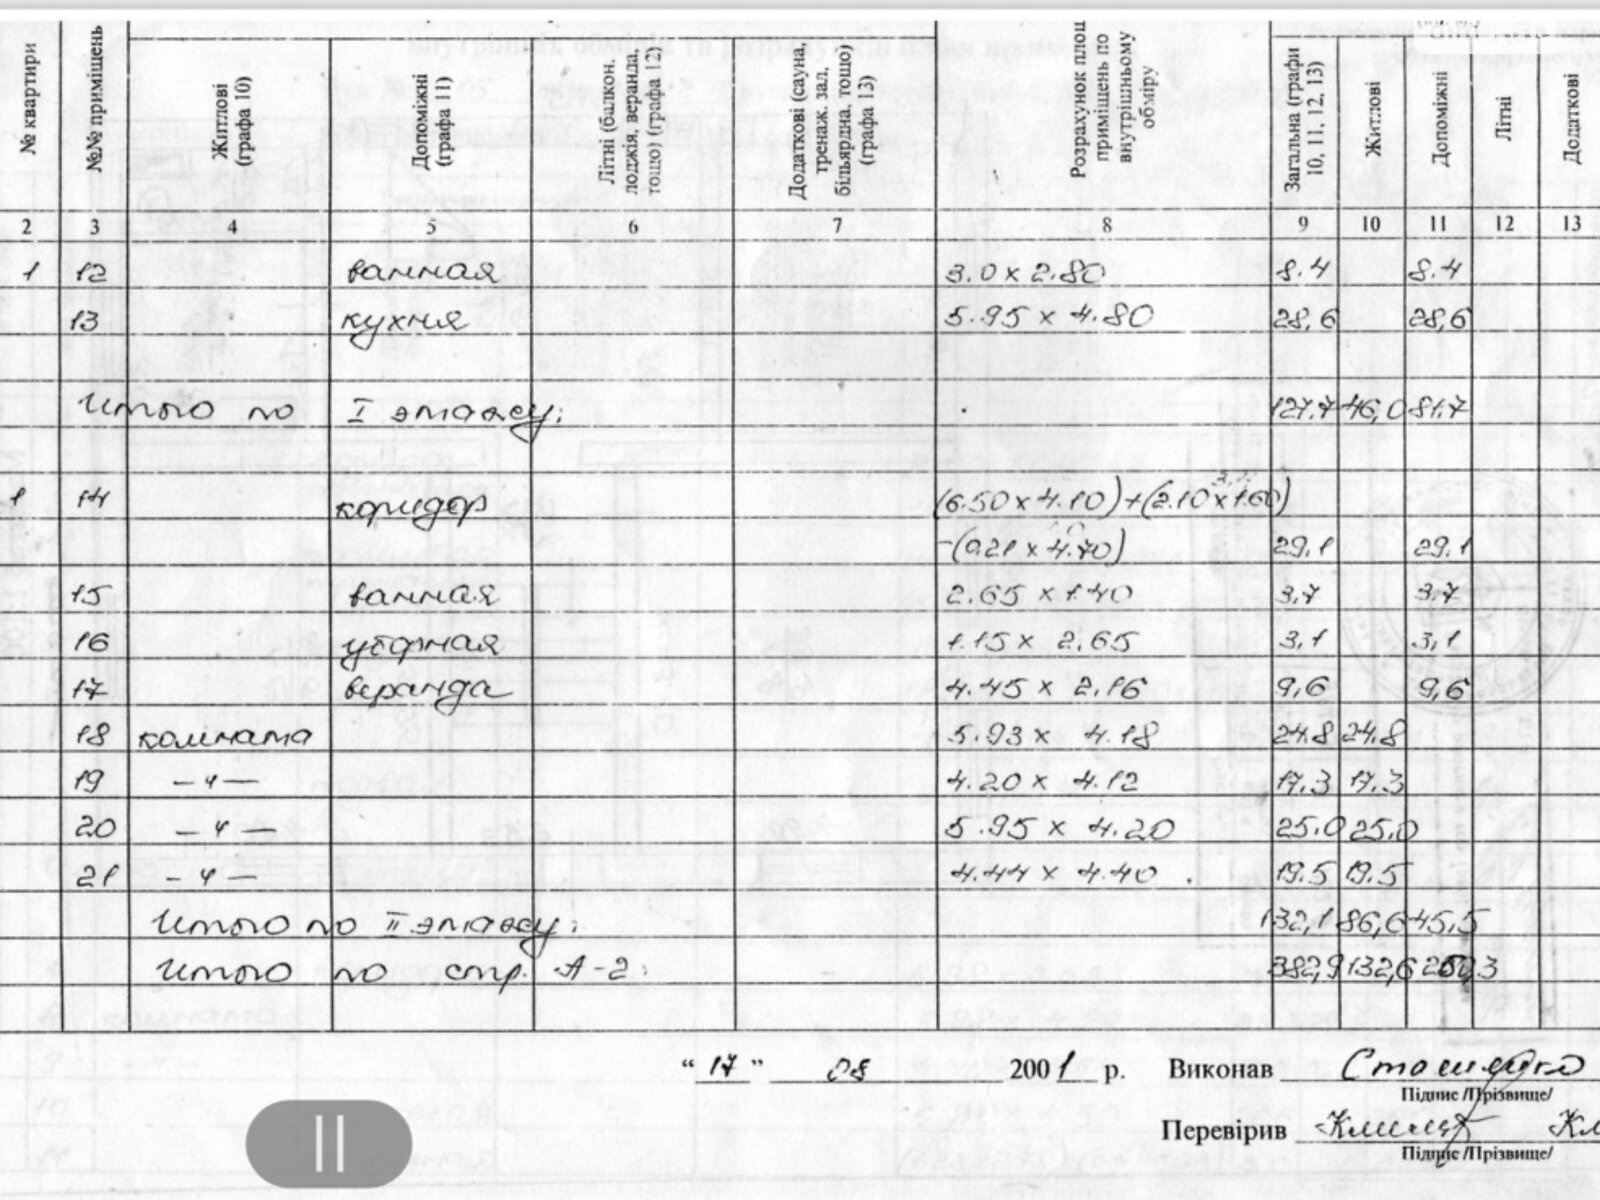 № квартири
№№ приміщень
Житлові (графа 10)
Допоміжні (графа 11)
Літні (балкон. лоджія, веранда, тощо) (графа 12)
Додаткові (сауна, тренаж. зал, більярдна. тощо) (графа 13)
Розрахунок площ приміщень по внутрішньому обміру
Загальна (графи 10, 11, 12, 13)
Житлові
Допоміжні
Літні
Додаткові
2 3 4 5 6 7 8 9 10 11 12 13
1 12 ванная 3.0 x 2.80 8.4 8.4
13 кухня 5.95 x 4.80 28,6 28,6
Итого по I этажу: 127,7 46,0 81,7
1 14 коридор (6.50 x 4.10)+(2.10 x 1.60)
-(0.21 x 4.70) 29,1 29,1
15 ванная 2.65 x 1.40 3,7 3,7
16 уборная 1.15 x 2.65 3,1 3,1
17 веранда 4.45 x 2.16 9,6 9,6
18 комната 5.93 x 4.18 24.8 24.8
19 —〃— 4.20 x 4.12 17.3 17.3
20 —〃— 5.95 x 4.20 25.0 25.0
21 —〃— 4.44 x 4.40 19.5 19.5
Итого по II этажу: 132,1 86,6 45,5
Итого по стр. А-2: 382,9 132,6
"17" 08 2001 р. Виконав
Підпис /Прізвище/
Перевірив
Підпис /Прізвище/